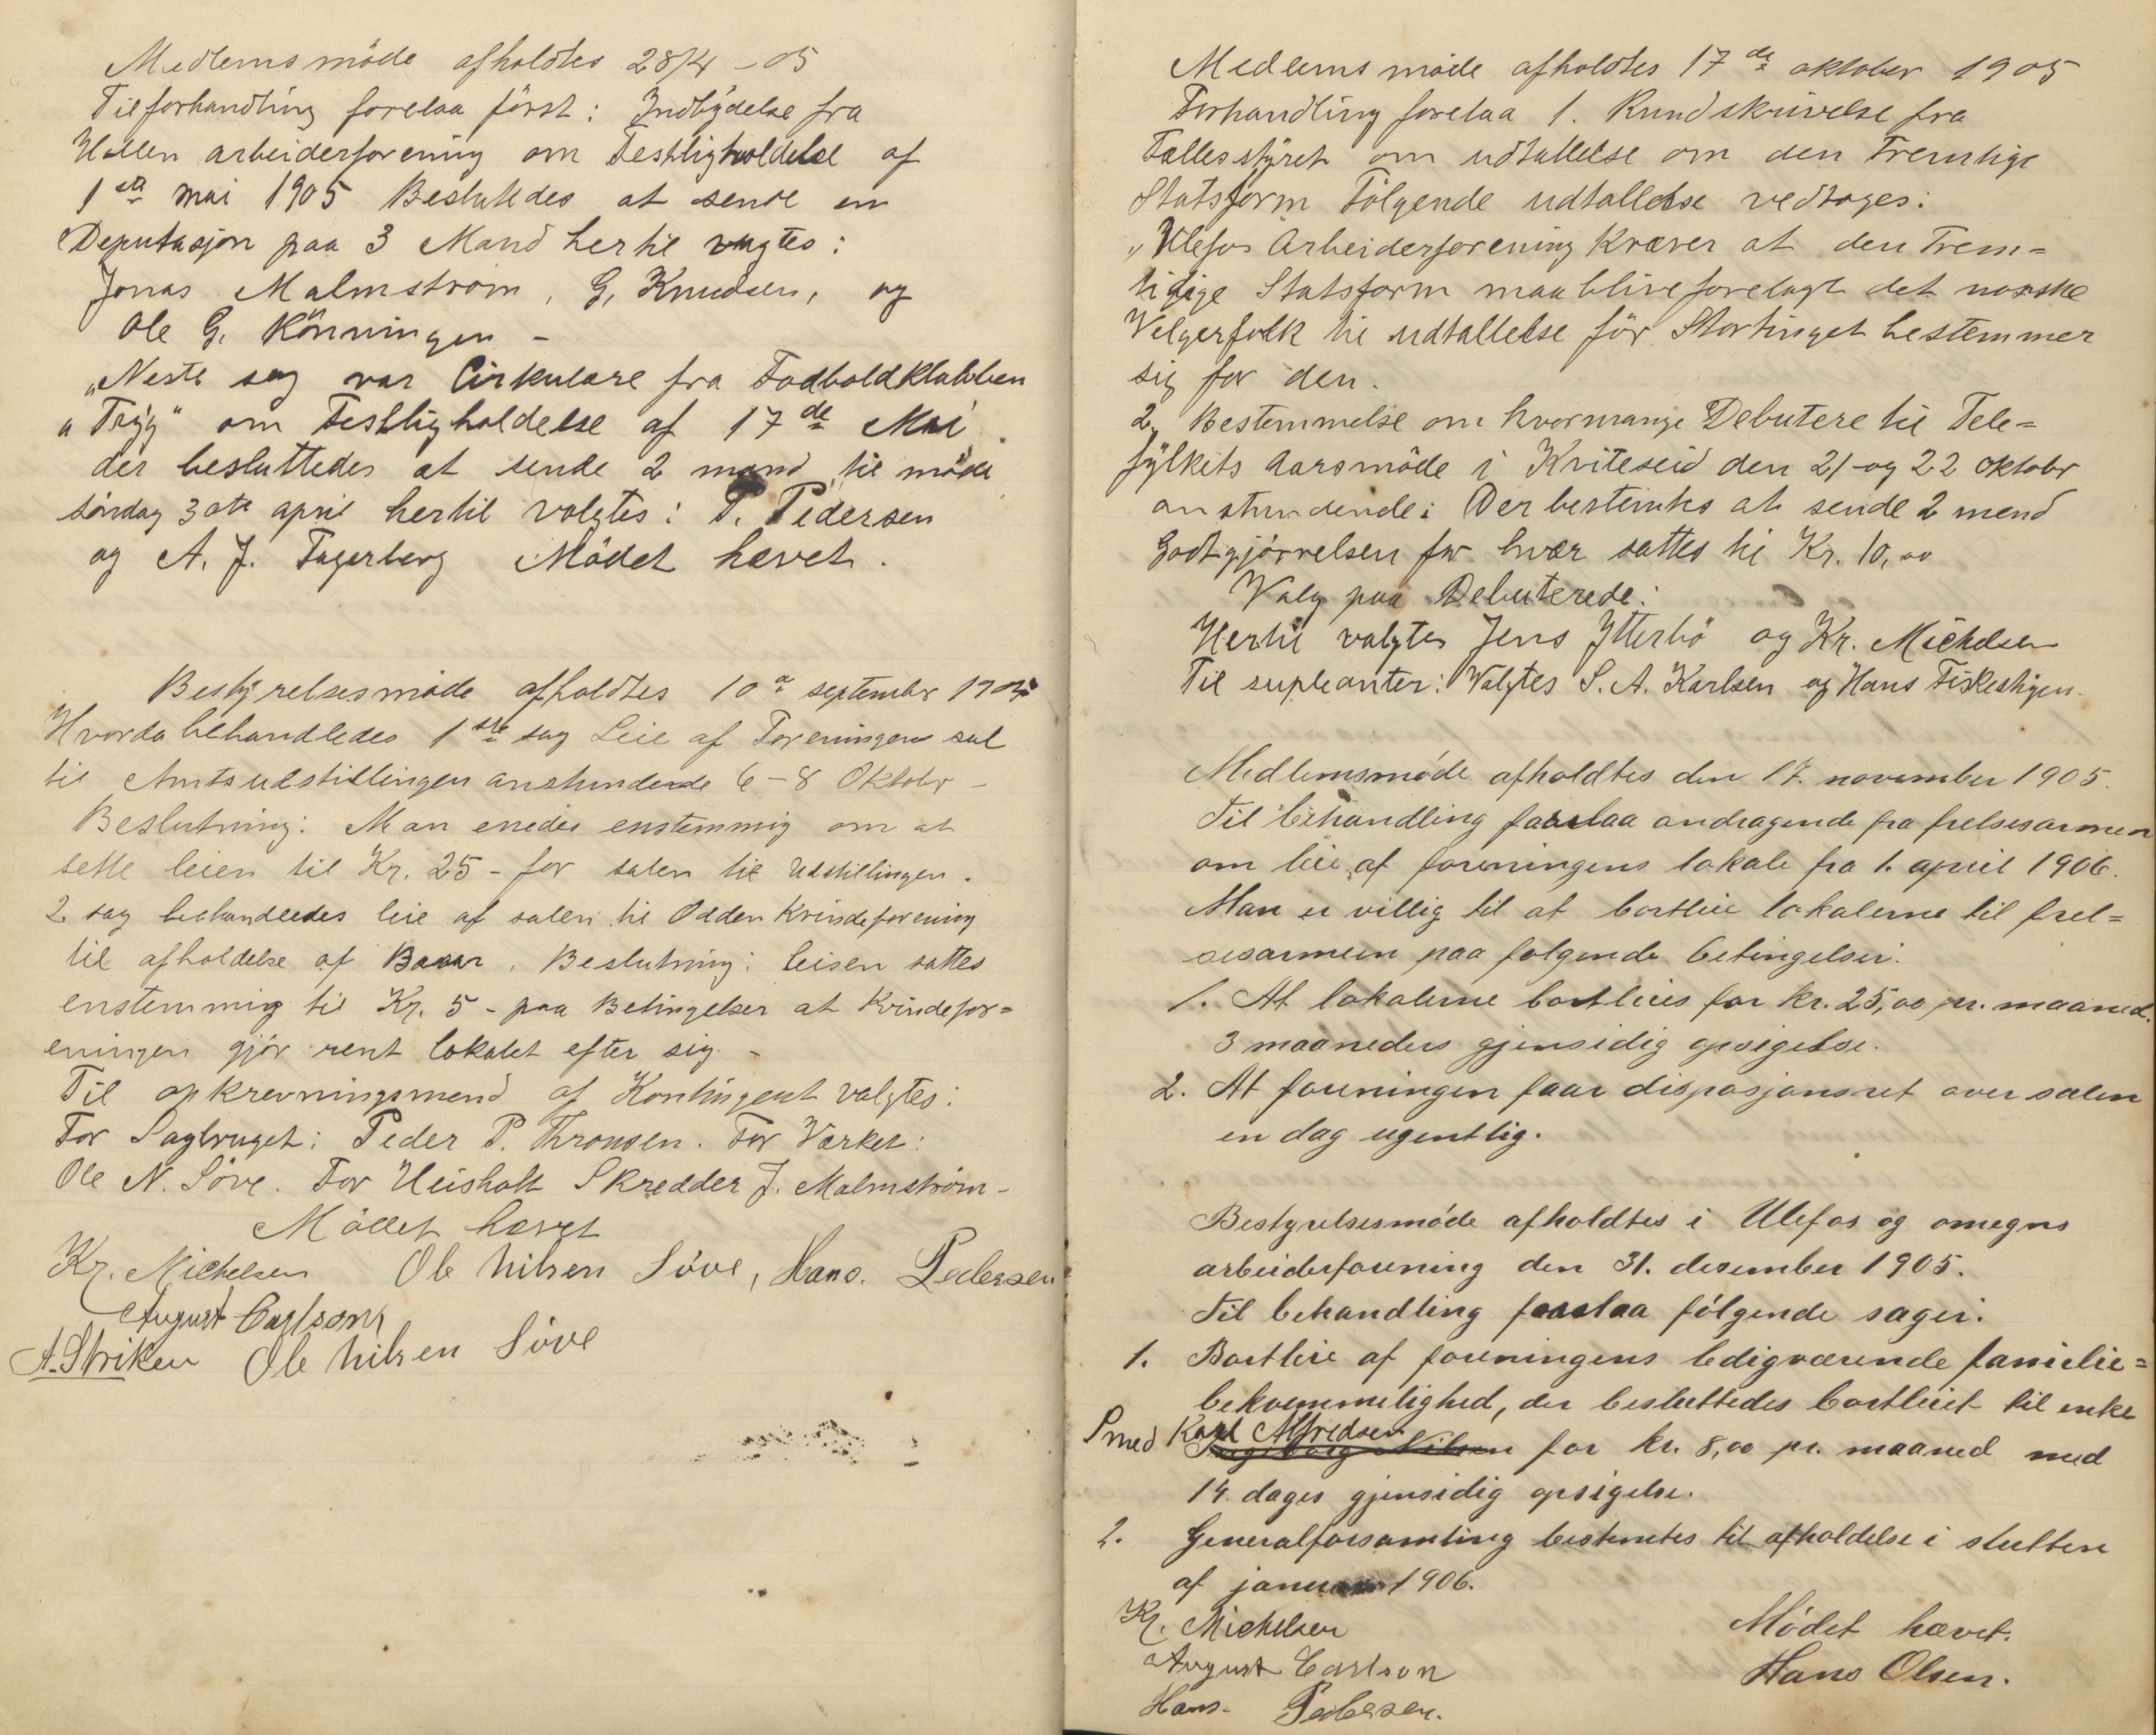 Medlemsmöde afholdtes 28/4 - 05
Til forhandling forelaa först: Indbydelse fra
Hollen arbeiderforening om Festligholdelse af
1ste mai 1905 Besluttedes at sende en
Deputasjon paa 3 Mand hertil valgtes:
Jonas Malmström, G. Knudsen, og
Ole G. Könningen -
"Neste sag var Cirkulære fra Fodboldklubben
"Tryg" om Festligholdelse af 17de Mai
der besluttedes at sende 2 mand til möde
söndag 30te april hertil valgtes: P. Pedersen
og A. J. Fagerberg Mödet hævet.
Bestyrelsesmöde afholdtes 10de september 1905
Hvorda behandledes 1ste sag Leie af Foreningens sal
til Amtsudstillingen anstundende 6-8 Oktober -
Beslutning: Man enedes enstemmig om at
sette leien til Kr. 25 - for salen til Udstillingen.
2 sag behandledes leie af salen til Odden Kvindeforening
til afholdelse af Basar. Beslutning: leisen sattes
enstemmig til Kr. 5 - paa Betingelser at Kvindefor=
eningen gjör rent lokalet efter sig. -
Til opkrevningsmend af Kontingent valgtes:
For Sagbruget: Peder P. Thronsen. For Værket:
Ole N. Söve. For Heisholt Skredder J. Malmström -
Mödet hævet
Kr. Michelsen Ole Nilsen Söve, Hans. Pedersen
August Carlson
A. Striken Ole Nilsen Söve
Medlemsmöde afholdtes 17de oktober 1905
Forhandling forelaa 1. Rundskrivelse fra
Fællesstyret om udtallelse om den Fremtige
Statsform Fölgende udtallelse vedtoges:
"Ulefos Arbeiderforening Kræver at den Frem=
tidige Statsform maa blive forelagt det norske
Velgerfolk til udtallelse för Stortinget bestemmer
sig for den.
2. Bestemmelse om hvormange Debutere til Tele=
fylkets Aarsmöde i Kviteseid den 21 og 22 oktobr
anstundende: Der bestemtes at sende 2 mend
Godtgjörrelsen for hvær sattes til Kr. 10,00
Valg paa Debuterede:
Hertil valgtes Jens Ytterbö og Kr. Michelsen
Til supleanter: Valgtes S. A. Karlsen og Hans Fiskestigen.
Medlemsmöde afholdtes den 17. november 1905.
Til behandling forelaa andragende fra frelsesarmeen
om leie af foreningens lokale fra 1. april 1906.
Man er villig til at bortleie lokalerne til frel=
sesarmeen paa følgende betingelser:
1. At lokalerne bortleies for kr. 25,00 pr. maaned.
3 maaneders gjensidig opsigelse.
2. At foreningen faar disposjonsret over salen
en dag ugentlig.
Bestyrelsesmöde afholdtes i Ulefos og omegns
arbeiderforening den 31. desember 1905.
Til behandling forelaa fölgende sager:
1. Bortleie af foreningens ledigværende familie=
bekvemmelighed, der besluttedes bortleiet til enke
Smed Karl Alfredsen
Ingeborg Nilsen for kr. 8,00 pr. maaned med
14. dages gjensidig opsigelse.
2. Generalforsamling bestemtes til afholdelse i slutten
af januar 1906.
Mödet hævet.
Kr. Michelsen
August Carlson
Hans Olsen.
Hans Pedersen.